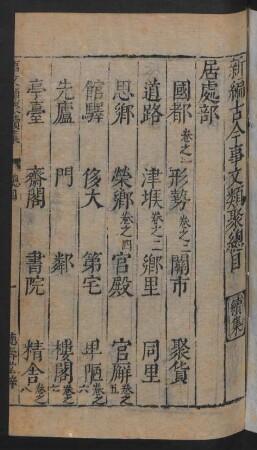 新編古今事文類聚總目 續集
居處部
國都卷之一 形勢卷之二 關市 聚貨
道路 津堠卷之三 鄉里 同里
思鄉 榮鄉卷之四 官殿 官廨卷之五
館驛 侈大 第宅 卑陋卷之六
先廬 門 鄰 樓閣卷之七
亭臺 齋閣 書院 精舍卷之八